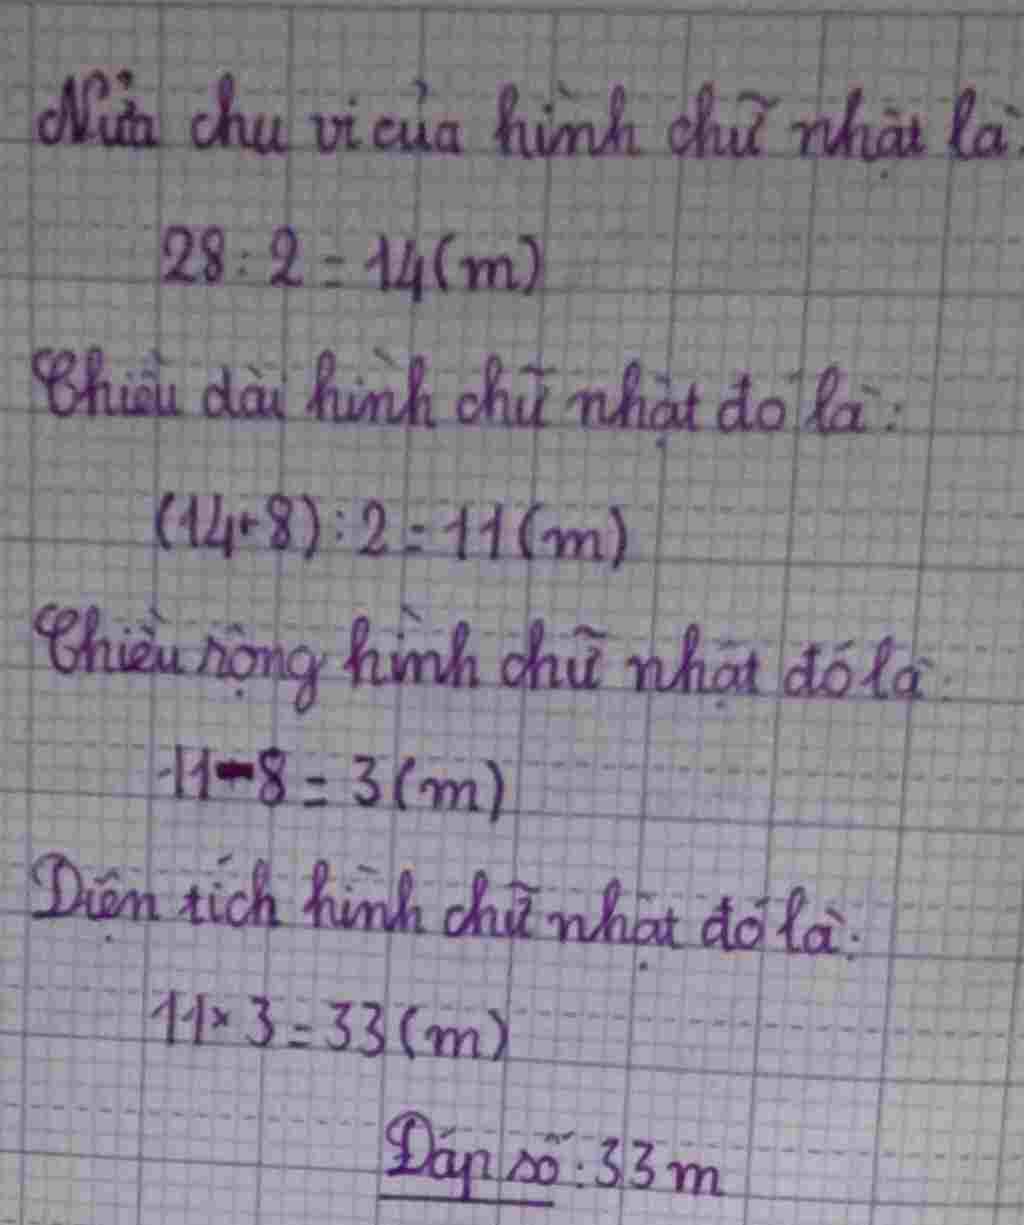 Nửa chu vi của hình chữ nhật là:
28 : 2 = 14 (m)
Chiều dài hình chữ nhật đó là:
(14 + 8) : 2 = 11 (m)
Chiều rộng hình chữ nhật đó là:
11 - 8 = 3 (m)
Diện tích hình chữ nhật đó là:
11 × 3 = 33 (m)
Đáp số : 33 m